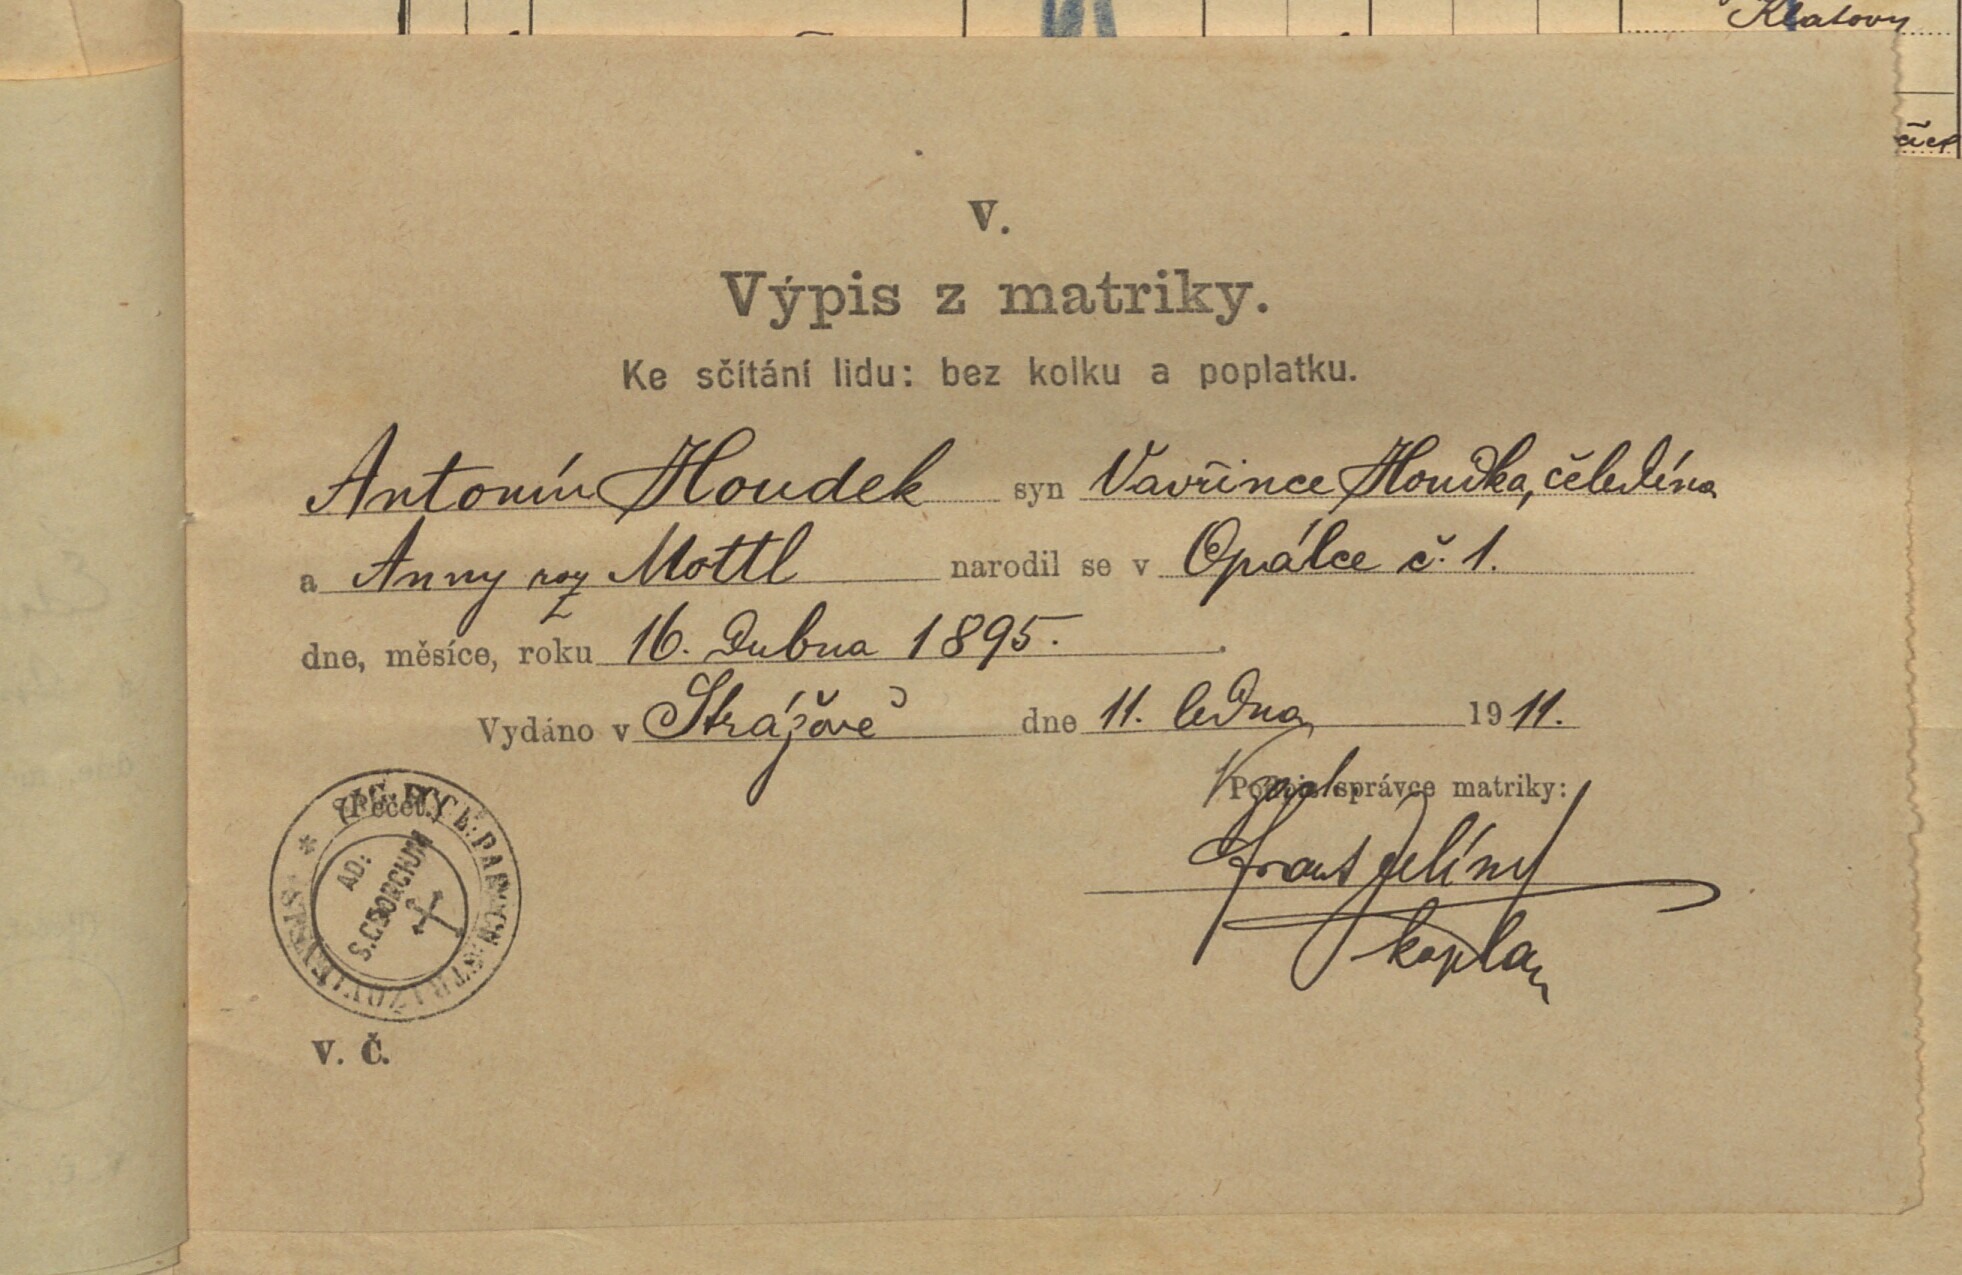 Klatovy
V.
Výpis z matriky.
Ke sčítání lidu: bez kolku a poplatku.
Antonín Houdek syn Vavřince Houdka, čeledína
a Anny roz Mottl narodil se v Opálce č. 1.
dne, měsíce, roku 16. dubna 1895.
Vydáno v Strážově dne 11. ledna 1911.
(Pečeť.) správce matriky:
AD:
S.GEORGIUM
Frant Jelíný
kaplan
V. Č.